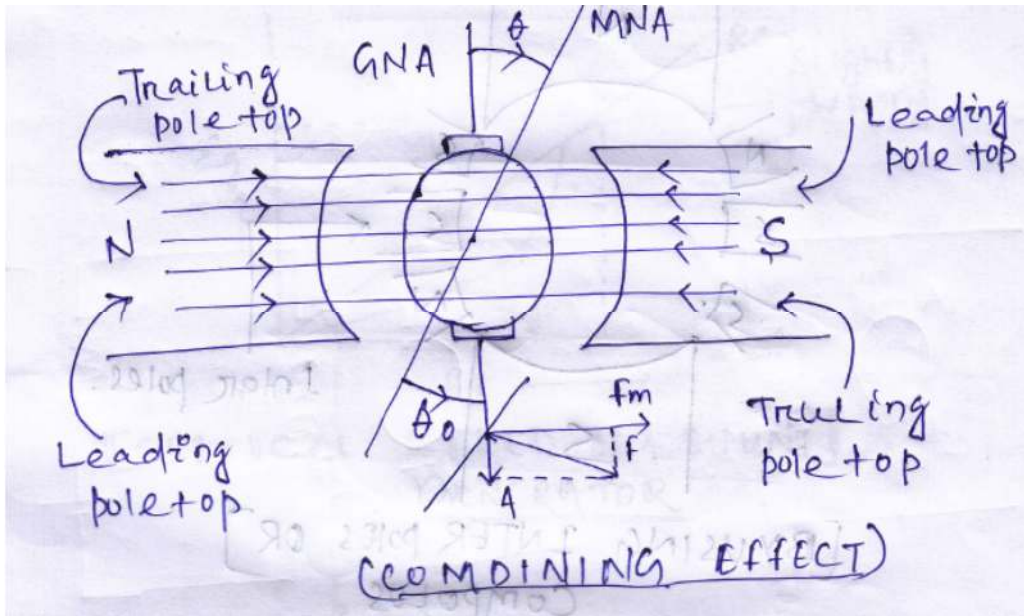 θ
MNA
GNA
Trailing
pole top
Leading
pole top
N
S
Leading
pole top
θ
0
fm
F
A
Truling
pole top
(COMDINING EFFECT)